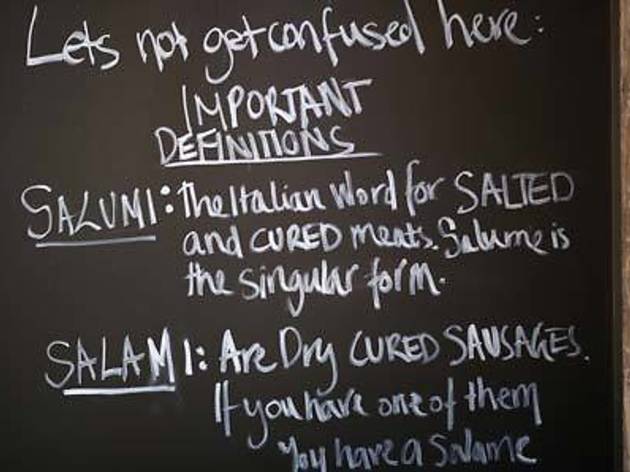 Lets not get confused here:
IMPORTANT
DEFINITIONS
SALUMI: The Italian Word for SALTED
and CURED meats. Salume is
the singular form.
SALAMI: Are Dry CURED SAUSAGES.
If you have one of them
you have a Salame